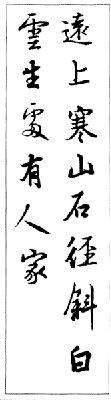 遠上寒山石徑斜白
雲生處有人家